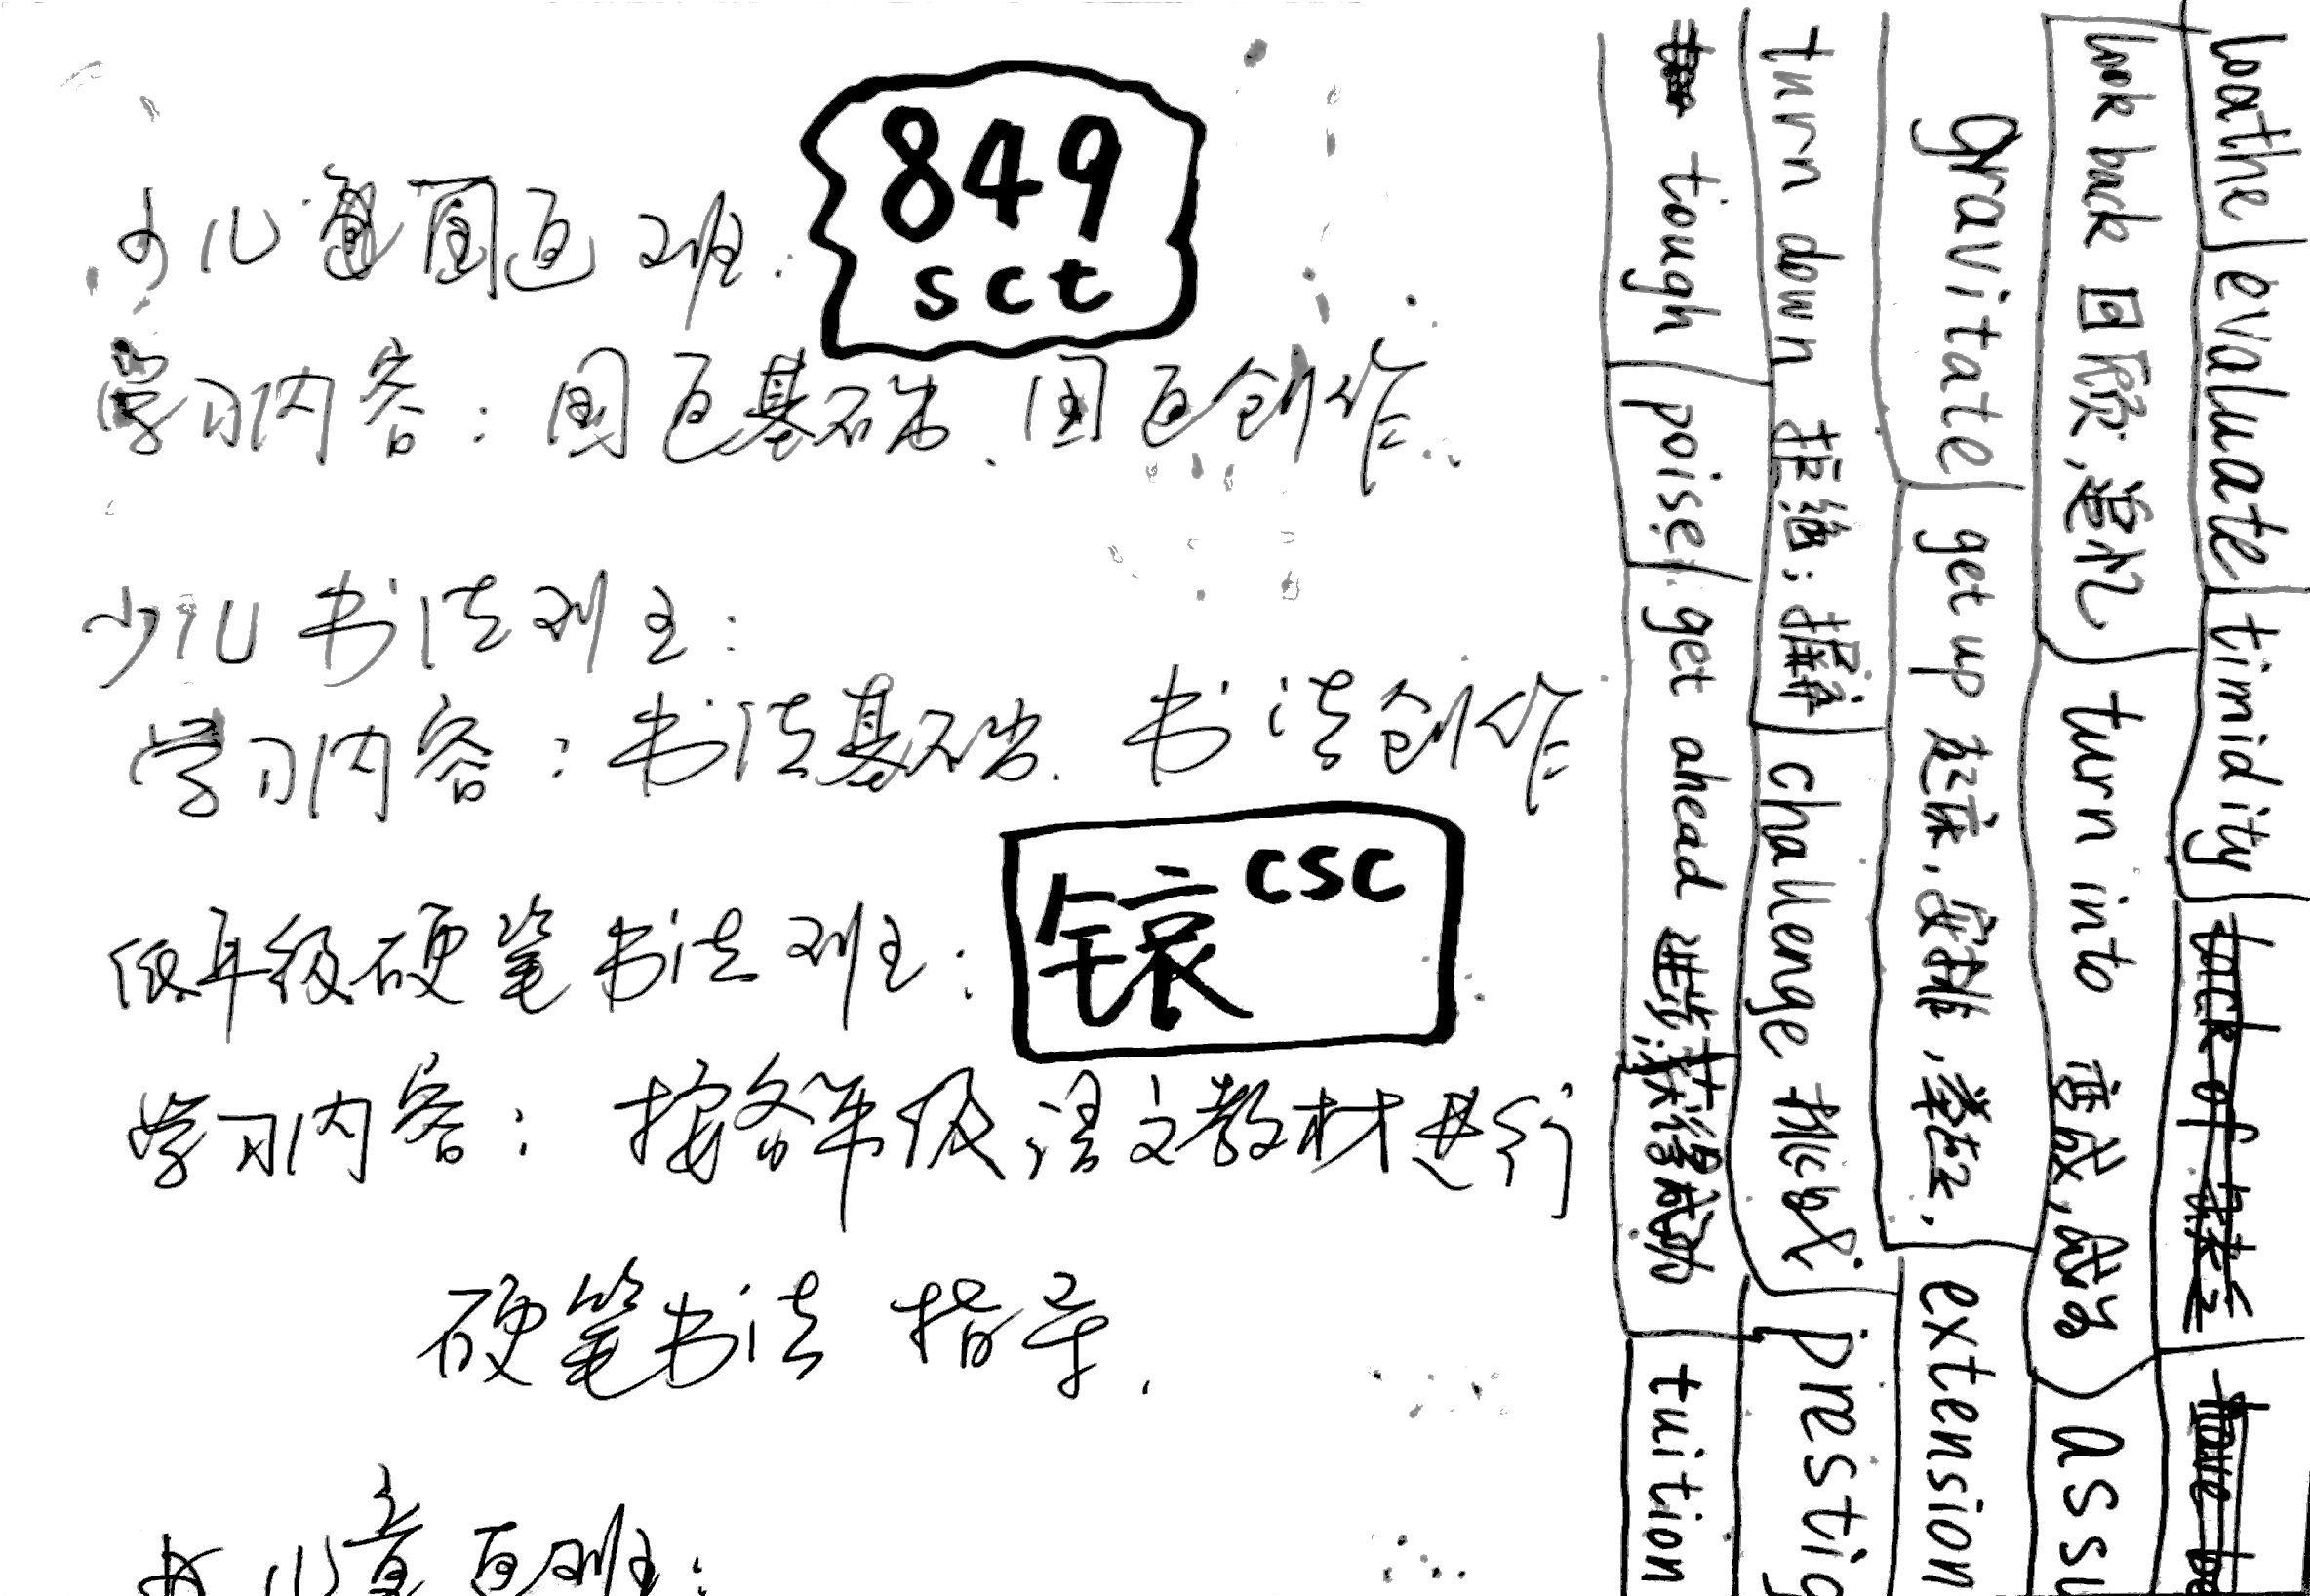 少儿国画班：
849
sct
学习内容：国画基础、国画创作
少儿书法班：
学习内容：书法基础、书法创作
低年级硬笔书法班：
镶 csc
学习内容：按各年级语文教材进行
硬笔书法指导.
少儿童画班：
loathe evaluate timidity
look back 回顾,追忆 turn into 变成,成为 assu
gravitate get up 起床,安排,举起, extension
turn down 拒绝;摒弃 challenge 挑战 prestig
tough poise get ahead 进步;获得成功 tuition